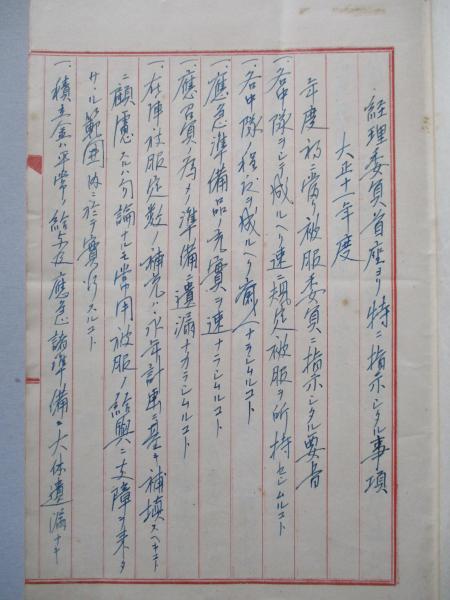 経理委員首座ヨリ特ニ指示シタル事項
大正十一年度
年度初ニ當リ被服委員ニ指示シタル要旨
一、各中隊ヲシテ成ルヘク速ニ規定被服ヲ所持セシムルコト
一、各中隊ノ程度ヲ成ルヘク齊一ナラシムルコト
一、應急準備品ノ充實ヲ速ナラシムルコト
一、應召員ノ為メノ準備ニ遺漏ナカラシムルコト
一、在庫被服定数ノ補充ハ永年計画ニ基キ補填スヘキコト
ニ顧慮スルハ勿論ナルモ常用被服ノ給與ニ支障ヲ来タ
サヽル範囲内ニ於テ實行スルコト
一、積立金ハ平常ノ給与及應急諸準備ニ大体遺漏ナキ